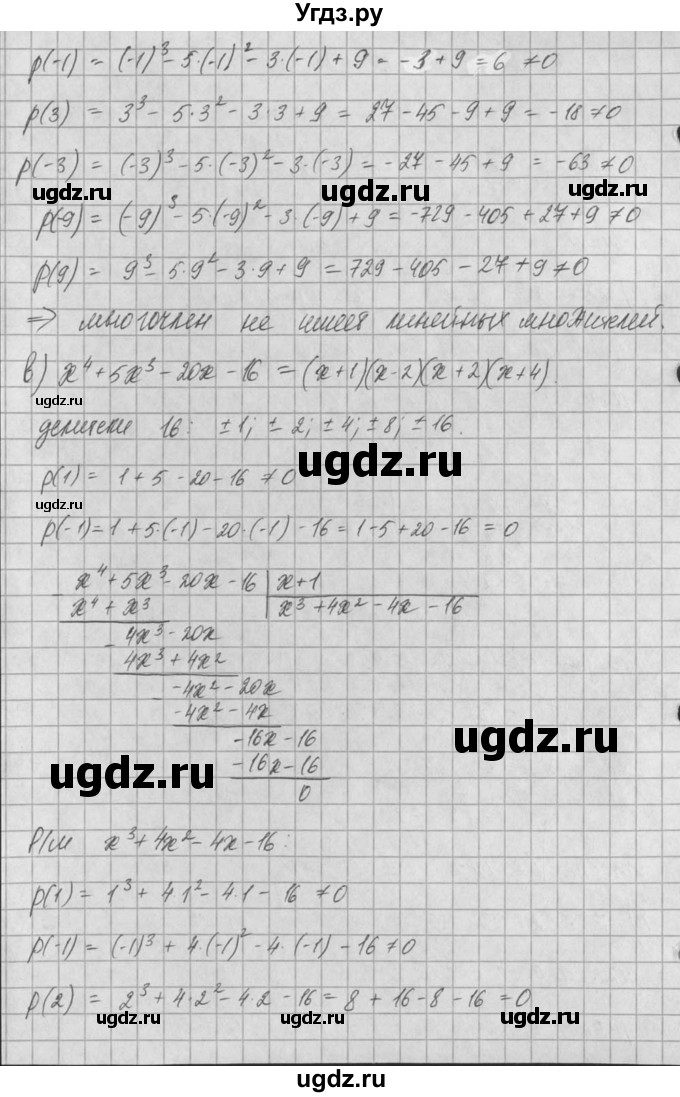 Угдз.ру
p(-1) = (-1)³ - 5·(-1)² - 3·(-1) + 9 = -3 + 9 = 6 ≠ 0
p(3) = 3³ - 5·3² - 3·3 + 9 = 27 - 45 - 9 + 9 = -18 ≠ 0
p(-3) = (-3)³ - 5·(-3)² - 3·(-3) = -27 - 45 + 9 = -63 ≠ 0
ugdz.ru ugdz.ru ugdz.ru
p(-9) = (-9)³ - 5·(-9)² - 3·(-9) + 9 = -729 - 405 + 27 + 9 ≠ 0
p(9) = 9³ - 5·9² - 3·9 + 9 = 729 - 405 - 27 + 9 ≠ 0
⇒ многочлен не имеет линейных множителей.
в) x⁴ + 5x³ - 20x - 16 = (x+1)(x-2)(x+2)(x+4).
ugdz.ru
делители 16: ±1; ±2; ±4; ±8; ±16.
ugdz.ru
p(1) = 1 + 5 - 20 - 16 ≠ 0
ugdz.ru
p(-1) = 1 + 5·(-1) - 20·(-1) - 16 = 1 - 5 + 20 - 16 = 0
- x⁴ + 5x³ - 20x - 16 | x+1
x⁴ + x³ | x³ + 4x² - 4x - 16
- 4x³ - 20x
4x³ + 4x²
- -4x² - 20x
-4x² - 4x
-16x - 16
ugdz.ru
-16x - 16
ugdz.ru
0
Р/м x³ + 4x² - 4x - 16:
p(1) = 1³ + 4·1² - 4·1 - 16 ≠ 0
p(-1) = (-1)³ + 4·(-1)² - 4·(-1) - 16 ≠ 0
p(2) = 2³ + 4·2² - 4·2 - 16 = 8 + 16 - 8 - 16 = 0
ugdz.ru ugdz.ru ugdz.ru
ugdz.ru